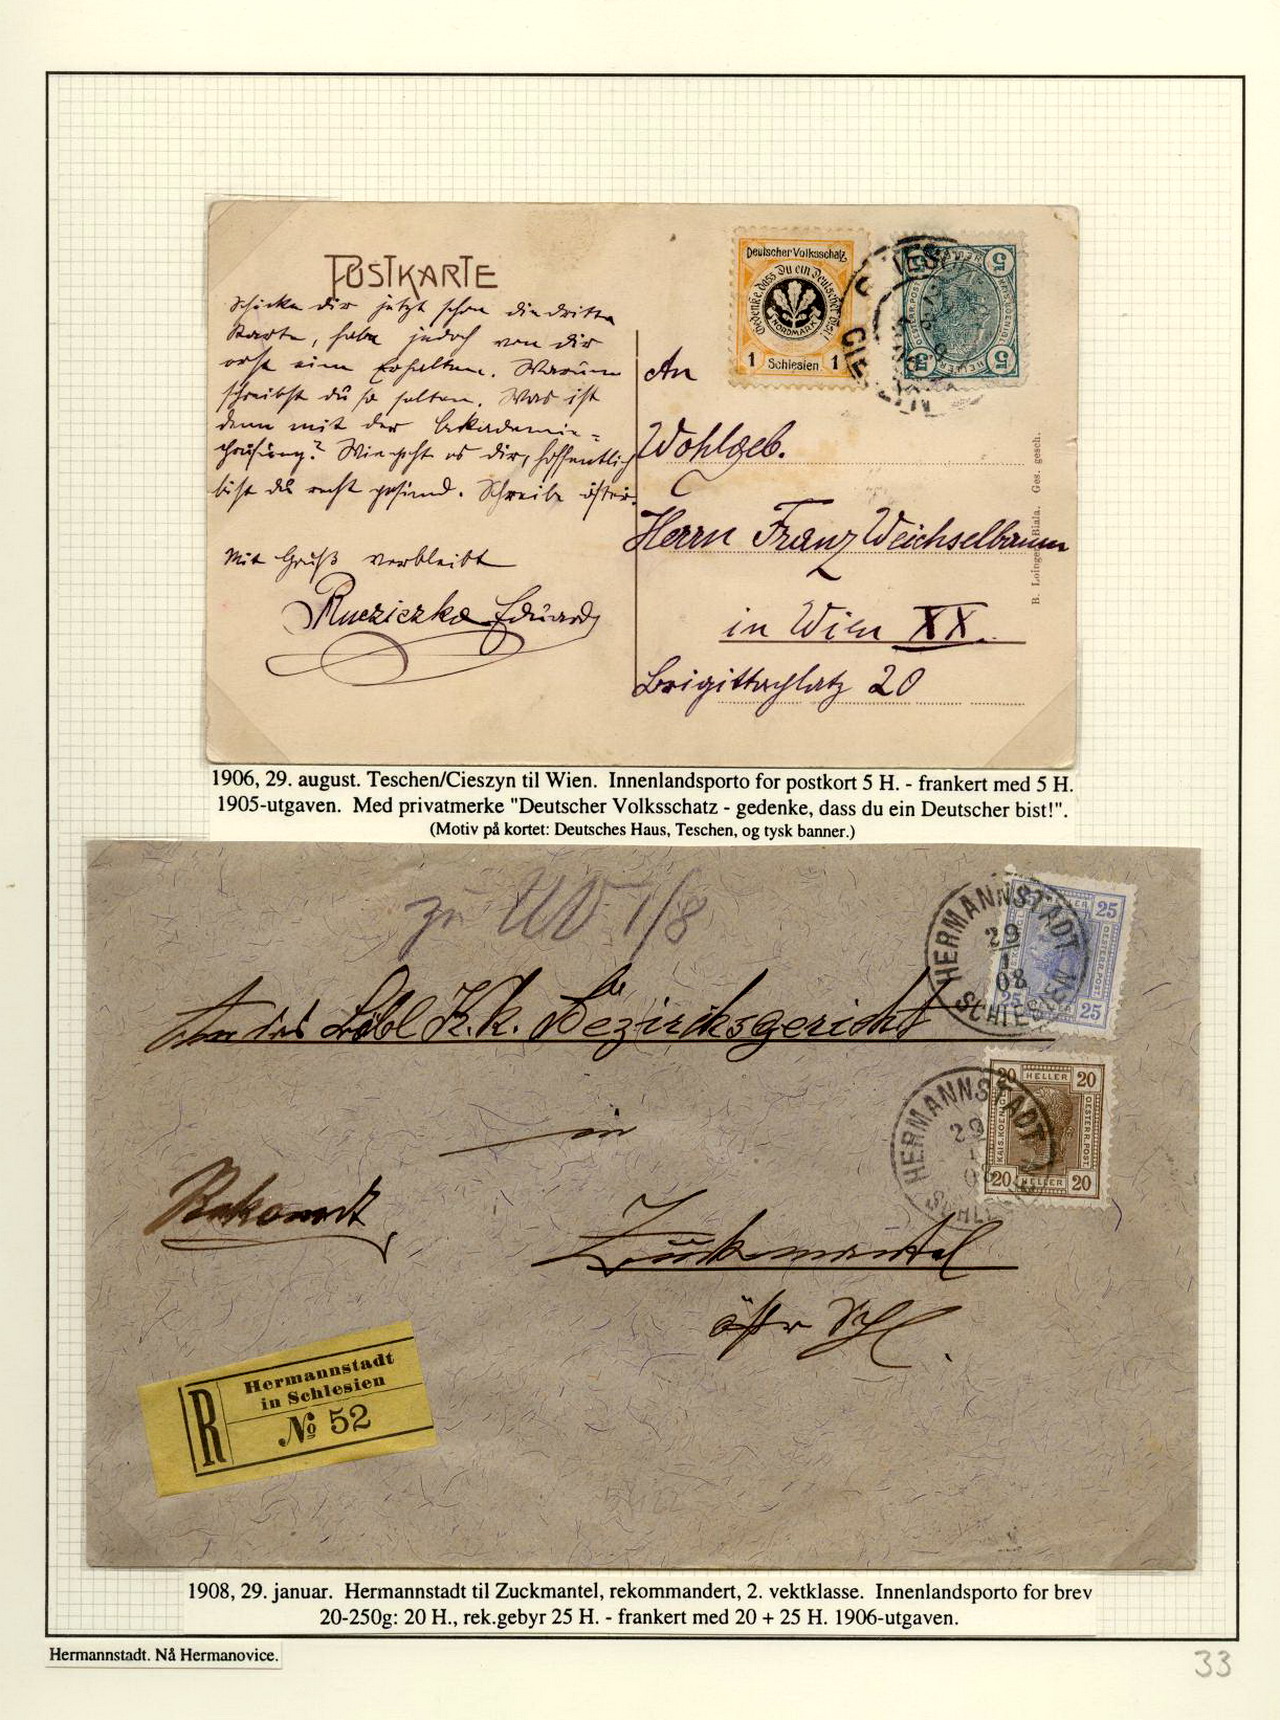 POSTKARTE
Schicke dir jetzt schon die dritte
Karte, habe jedoch von dir
erst eine Erhalten. Warum
schreibst du so selten. Was ist
denn mit der Akademie-
prüfung? Wie geht es dir, hoffentlich
bist du recht gesund. Schreibe öfter.
Mit Gruß verbleibt
Rueziczka Eduard
Deutscher Volksschatz
Gedenke, dass Du ein Deutscher bist!
NORDMARK
1 Schlesien 1
5 5
5 5
An
Wohlgeb.
Herrn Franz Weichselbaum
in Wien XX.
Brigittaplatz 20
B. Loinger, Biala. Ges. gesch.
1906, 29. august. Teschen/Cieszyn til Wien. Innenlandsporto for postkort 5 H. - frankert med 5 H.
1905-utgaven. Med privatmerke "Deutscher Volksschatz - gedenke, dass du ein Deutscher bist!".
(Motiv på kortet: Deutsches Haus, Teschen, og tysk banner.)
zu
An das Löbl K.k. Bezirksgericht
in
Zuckmantel
östr Schl.
Rekomdt
HERMANNSTADT
29
1
08
SCHLESIEN
HELLER 25
OESTERR. POST
25 25
HERMANNSTADT
29
1
08
20 HELLER 20
KAIS. KOEN
OESTERR. POST
20 HELLER 20
R
Hermannstadt
in Schlesien
No 52
1908, 29. januar. Hermannstadt til Zuckmantel, rekommandert, 2. vektklasse. Innenlandsporto for brev
20-250g: 20 H., rek.gebyr 25 H. - frankert med 20 + 25 H. 1906-utgaven.
Hermannstadt. Nå Hermanovice.
33